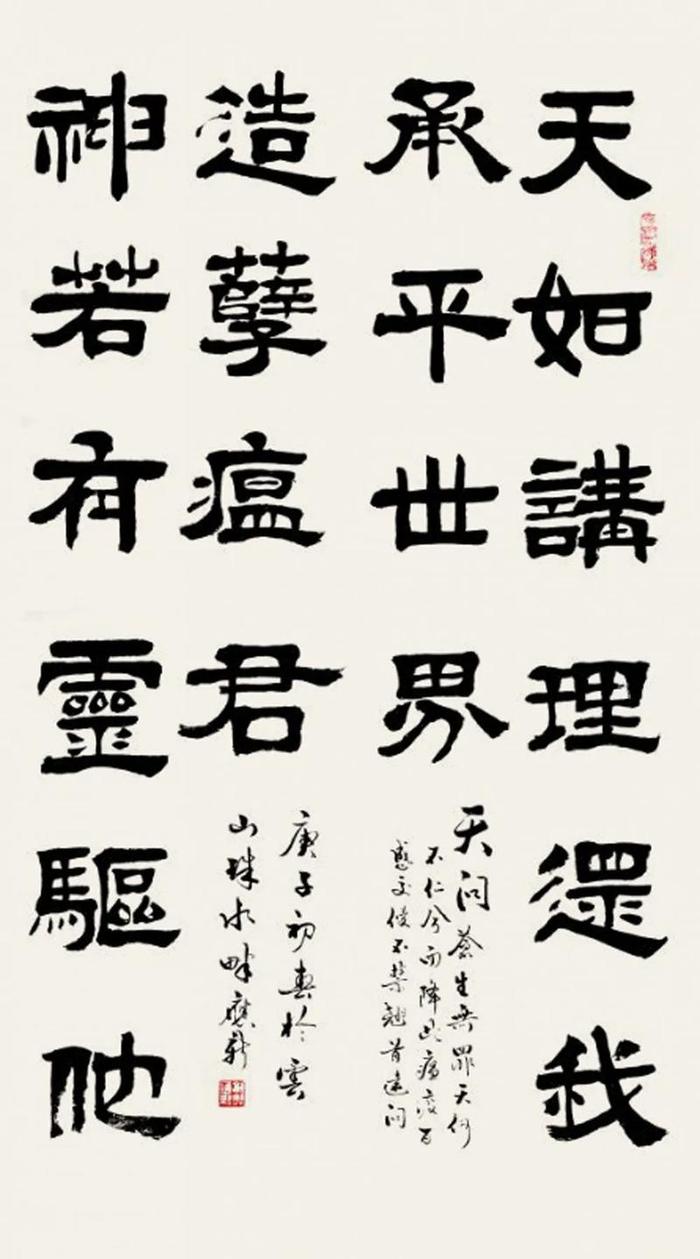 天如講理還我
承平世界
天問
蒼生無罪天何
不仁兮而降此疫百
感交侵不禁翹首遠問
造孽瘟君
庚子初春於雲
山珠水畔
神若有靈驅他